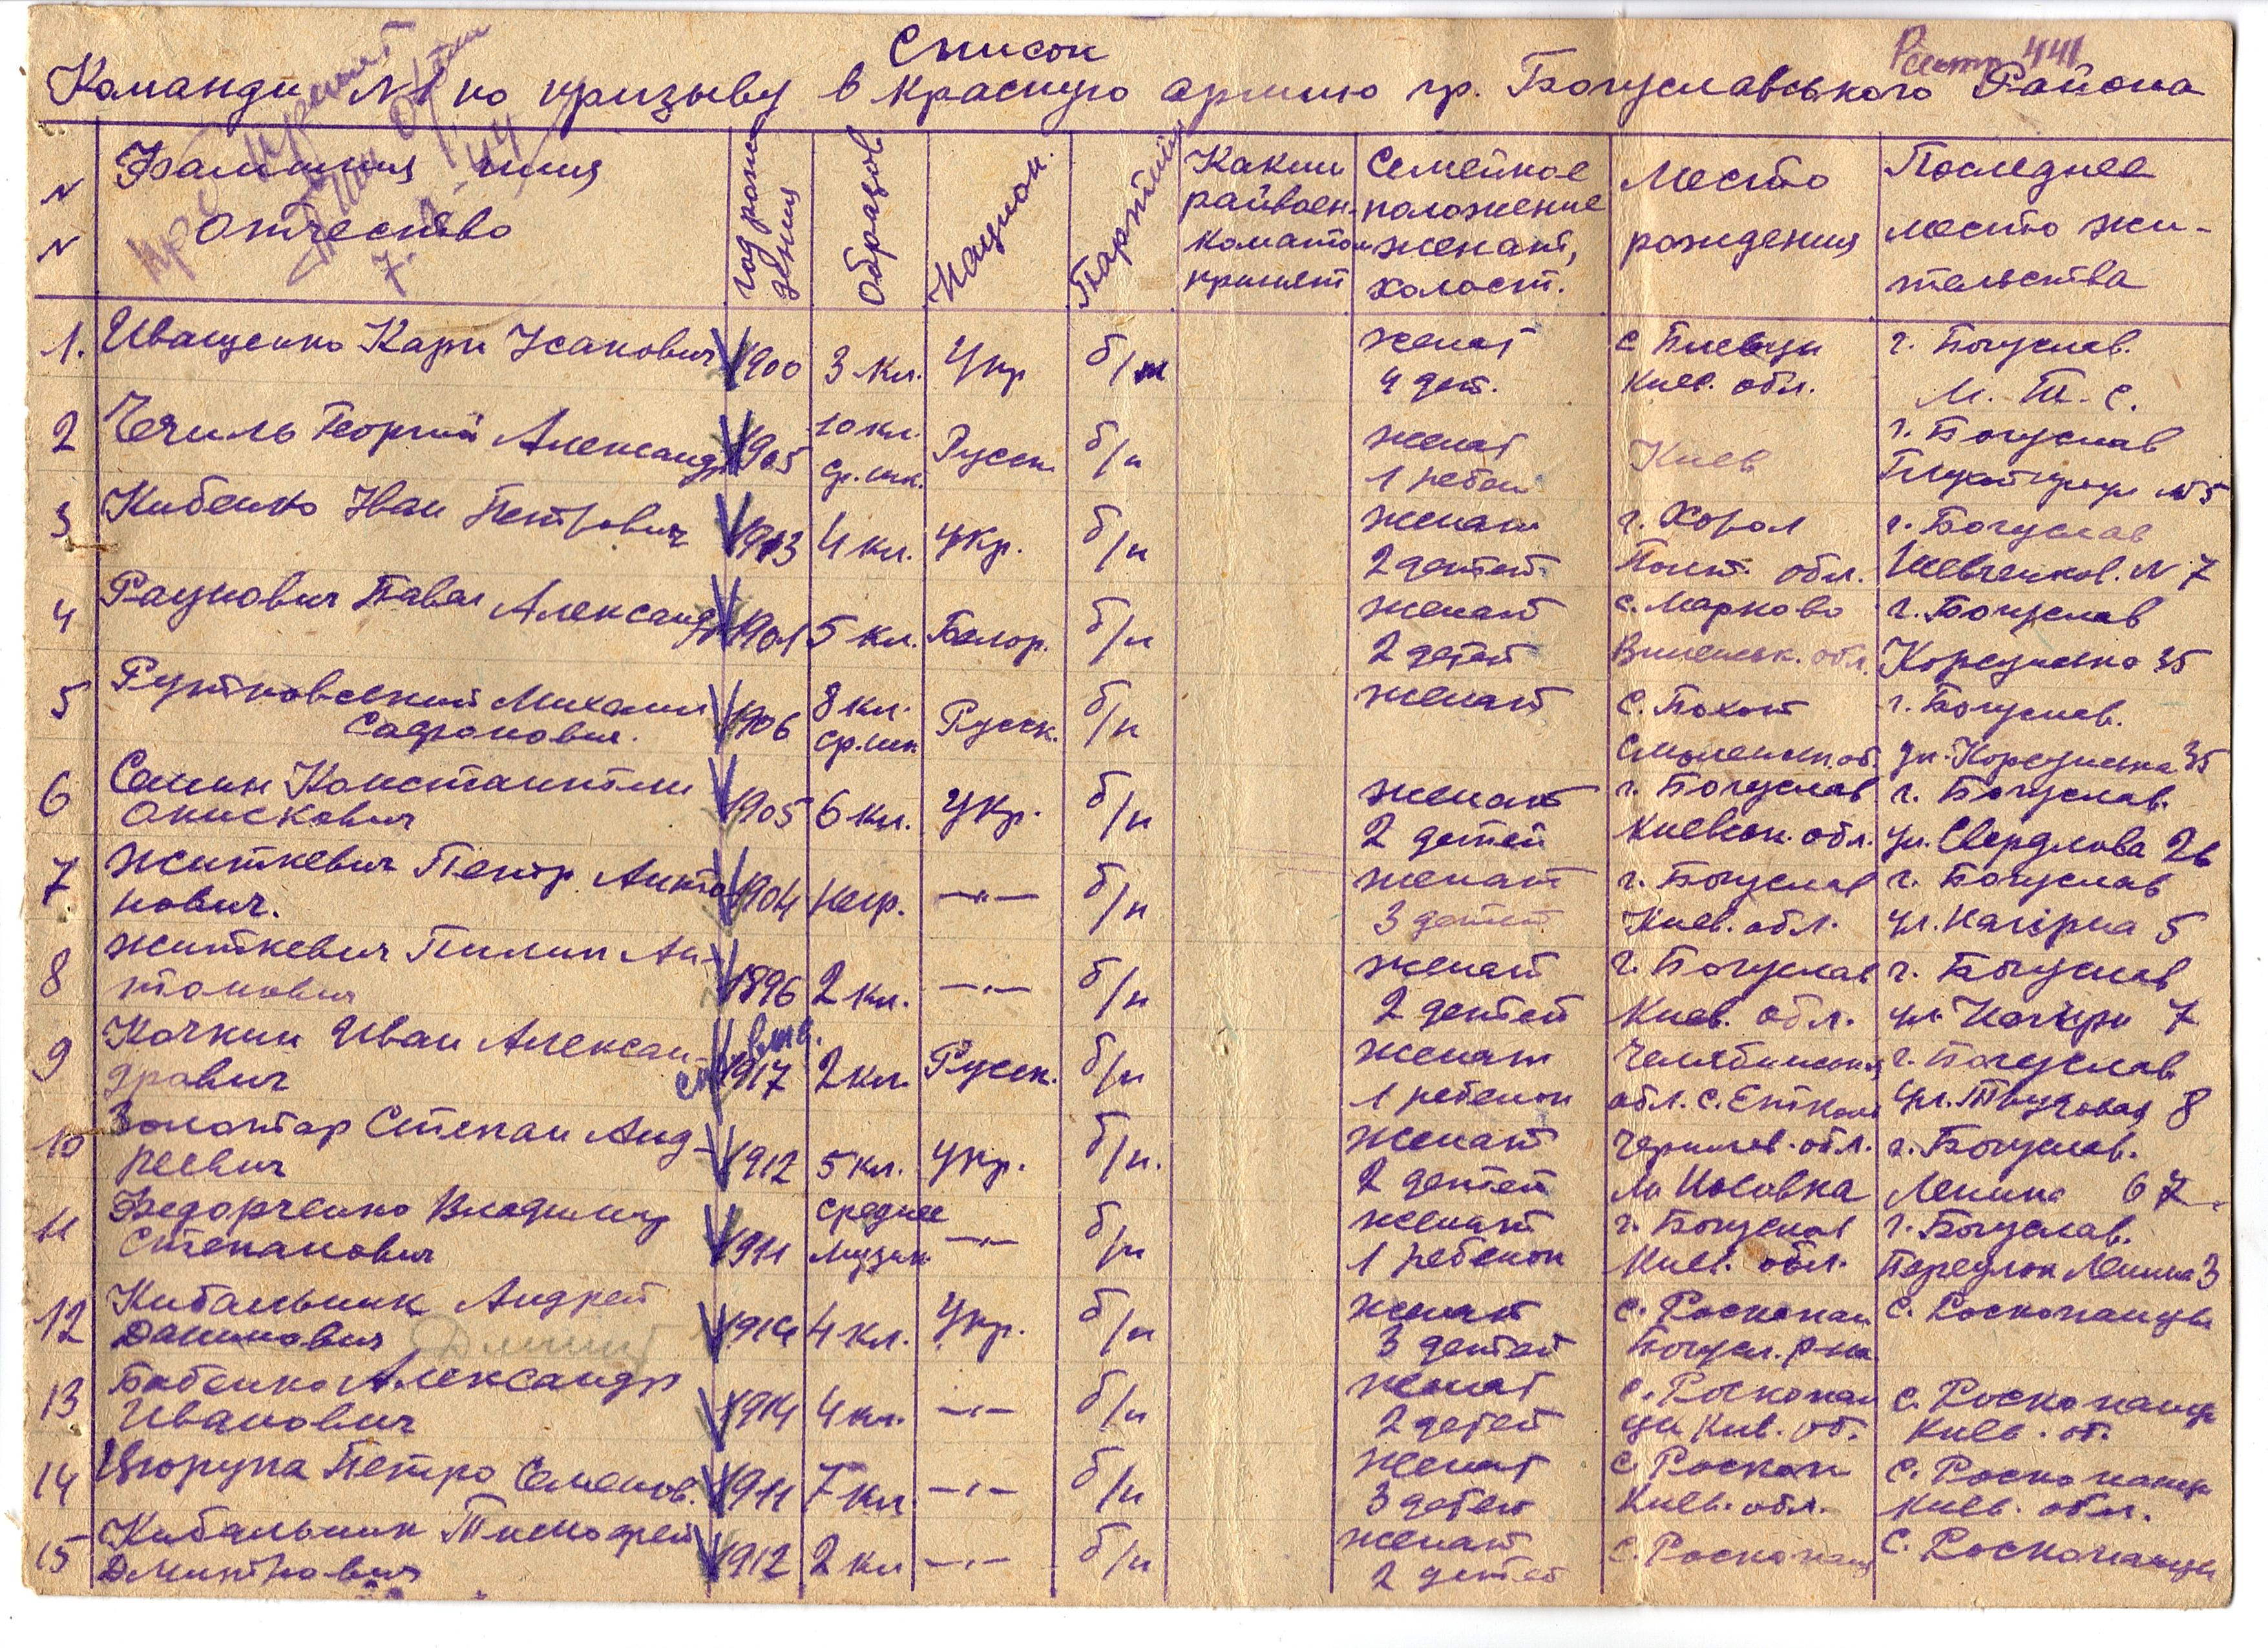 Список
Команди №1 по призыву в красную армию гр. Богуславського Района
N N
Фамилия имя отчество
год рождения
Образов
Национ.
Партийн
Каким райвоенкоматом принят
Семейное положение женат, холост.
Место рождения
Последнее место жительства
1. Иващенко Карп Усанович 1900 3 кл. Укр б/п женат г. Богуслав.
4 дет. Киев. обл. М. Т. С.
2 Чечиль Георгий Александр 1905 10 кл. ср. шк. Русск б/п женат Киев г. Богуслав
1 ребен №5
3 Кибенко Иван Петрович 1913 4 кл. укр. б/п женат г. Хорол г. Богуслав
2 детей Полт. обл. Шевченков. N 7
4 Рацнович Павел Александр 1901 5 кл. Белор. б/п женат с. Марково г. Богуслав
2 детей Виленск. обл. Корсунська 35
5 Рутковский Михаил 1906 8 кл. Русск. б/п женат с. Похот г. Богуслав.
Сафронович. ср. шк Смоленск. об. ул. Корсунська 35
6 Сашин Константин 1905 6 кл. Укр. б/п женат г. Богуслав г. Богуслав.
Онискович 2 детей Киевск. обл. ул. Свердлова 26
7 Житкевич Петр Анто 1904 негр. —"— б/п женат г. Богуслав г. Богуслав
нович. 3 детей Киев. обл. ул. Нагірна 5
8 Житкевич Пилип Ан- 1896 2 кл. —"— б/п женат г. Богуслав г. Богуслав
тонович 2 детей Киев. обл. ул. Нагірн 7
9 Кочкин Иван Алексан- 1917 2 кл. Русск. б/п женат Челябинская г. Богуслав
дрович 1 ребенок обл. с. Еткуль ул. Трудовая 8
10 Золотар Степан Анд- 1912 5 кл. укр. б/п. женат Чернигов. обл. г. Богуслав.
реевич 2 детей м Носовка Ленина 67
11 Федорченко Владимир 1911 среднее —"— б/п женат г. Богуслав г. Богуслав.
Степанович музык 1 ребенок Киев. обл. Переулок Ленина 3
12 Кибальник Андрей 1914 4 кл. Укр. б/п женат с. Роскопан с. Роскопанцы
Данилович Дмит 3 детей Богусл. р-на
13 Бабенко Александр 1914 4 кл. —"— б/п женат с. Роскопан с. Роскопанцы
Иванович 2 детей цы Кив. об. Киев. об.
14 Цюрупа Петро Семенов. 1911 7 кл —"— б/п женат с. Роскоп с. Роскопанцы
3 детей Киев. обл. Киев. обл.
15 Кибальник Тимофей 1912 2 кл —"— б/п женат с. Роскопанц с. Роскопанцы
Дмитрович 2 детей